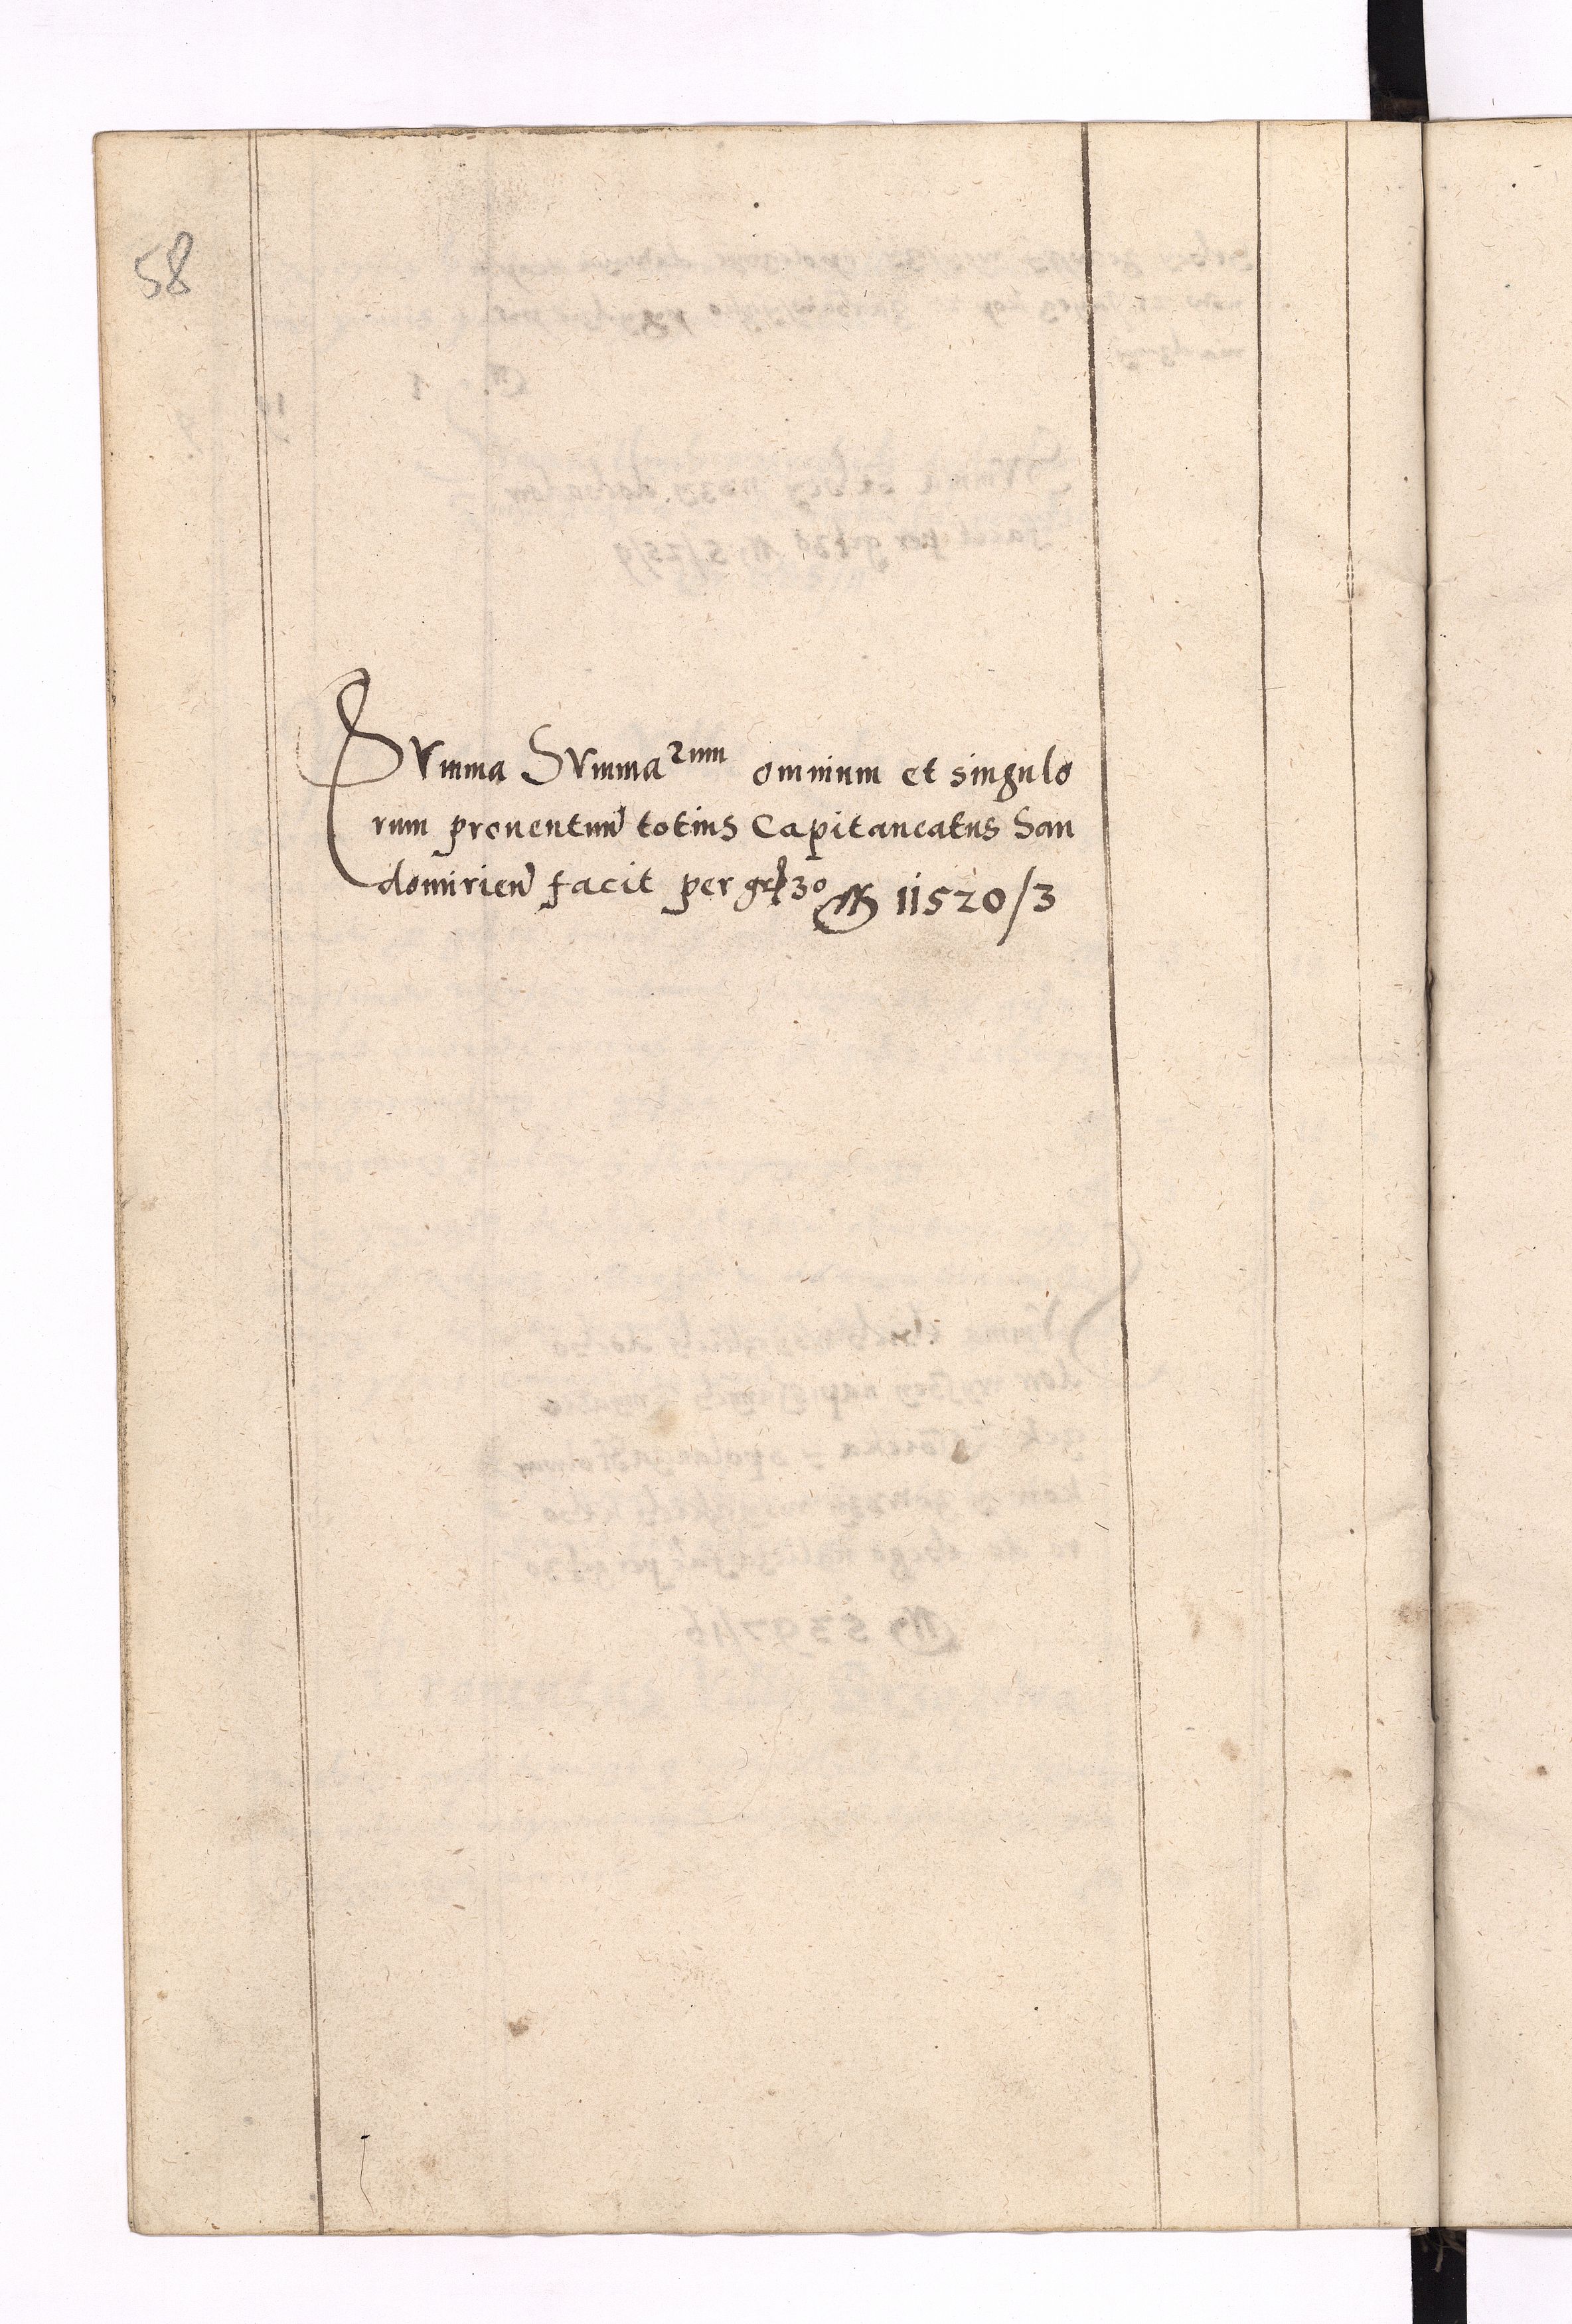 58
Summa Summarum omnium et singulo
rum prouentuũ totius Capitaneatus San
domirieñ facit per g 30 M 11520/3